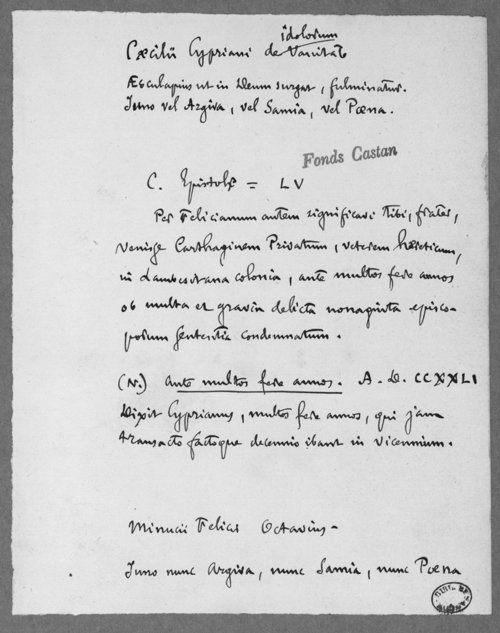 idolorum
Cæcilii Cypriani de Vanitate
Æsculapius ut in Deum surgat, fulminatur.
Juno vel Argiva, vel Samia, vel Pœna.
Fonds Castan
C. Epistola = LV
Per Felicianum autem significavi tibi, frater,
venisse Carthaginem Privatum, veterem hæreticum,
in Lambesitana colonia, ante multos fere annos
ob multa et gravia delicta nonaginta episco-
porum sententia condemnatum.
(N.) Ante multos fere annos. A. D. CCXXLI
Dixit Cyprianus, multos fere annos, qui jam
transacto factoque decennio ibant in vicennium.
Minucii Felicis Octavius -
Juno nunc Argiva, nunc Samia, nunc Pœna